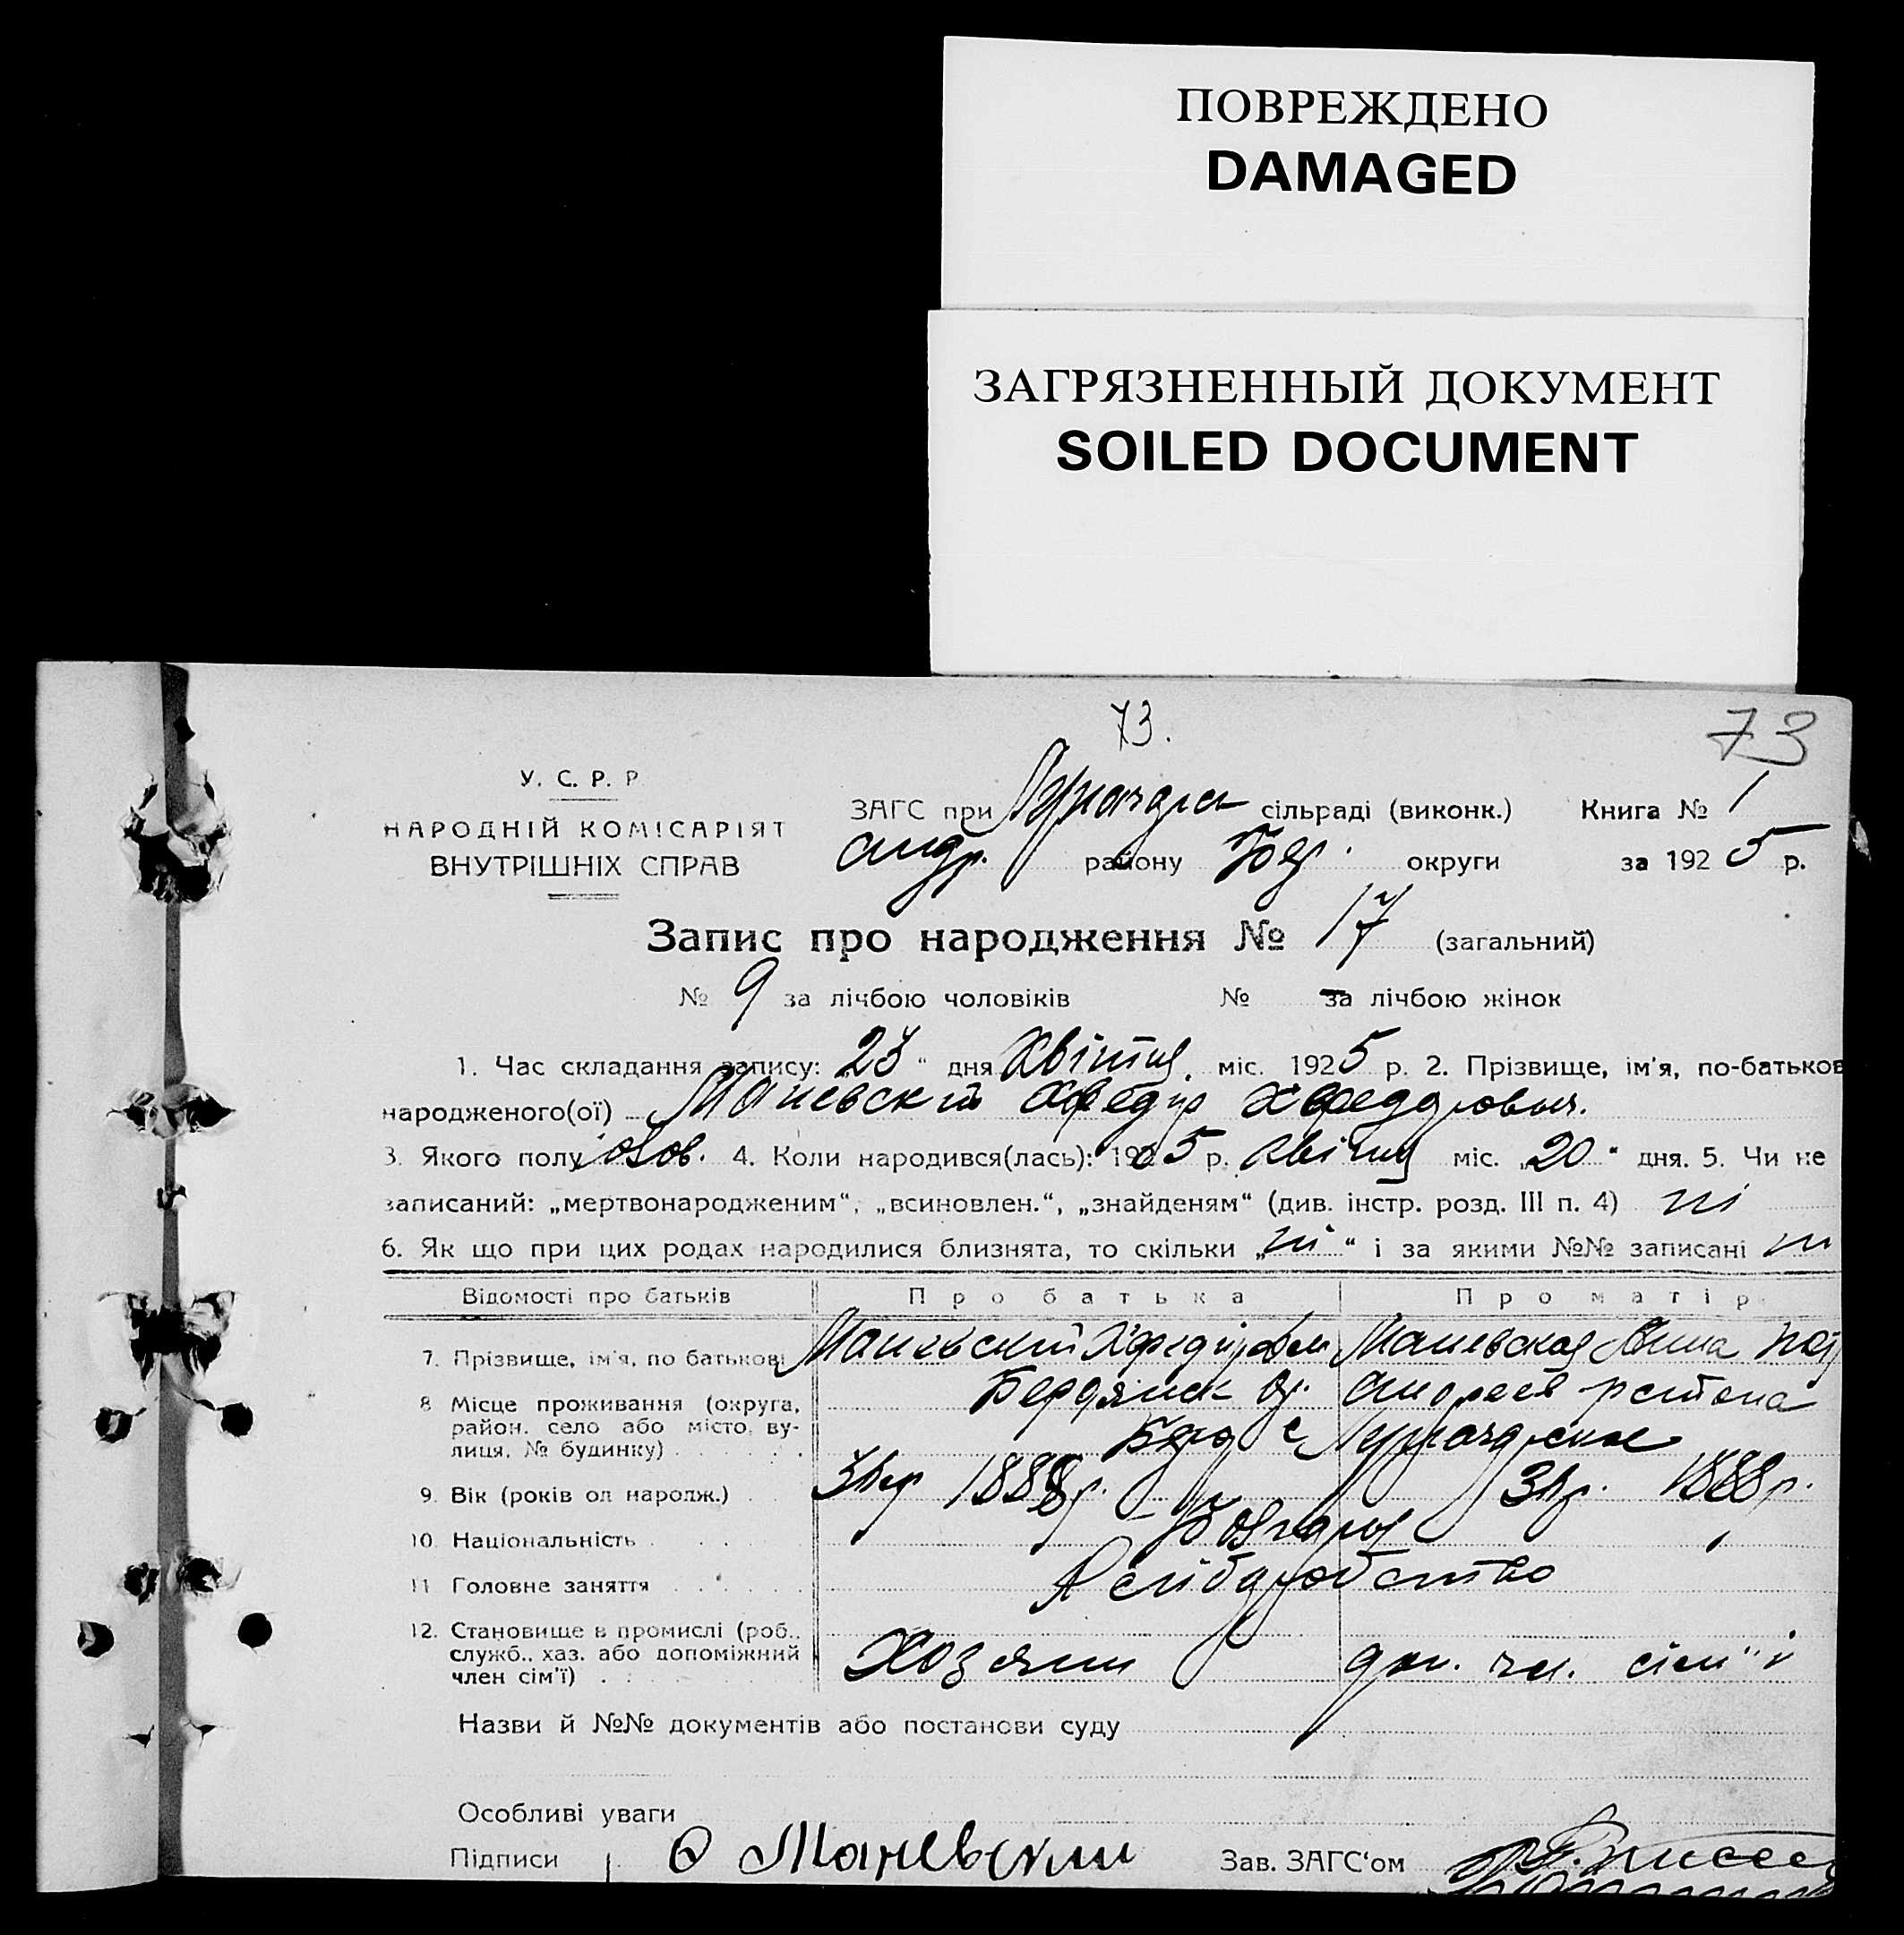 ПОВРЕЖДЕНО
DAMAGED
ЗАГРЯЗНЕННЫЙ ДОКУМЕНТ
SOILED DOCUMENT
73.
73
У. С. Р. Р
НАРОДНІЙ КОМІСАРІЯТ
ВНУТРІШНІХ СПРАВ
ЗАГС при сільраді (виконк.) Книга № 1
андр. району Бер. округи за 1925 р.
Запис про народження № 17 (загальний)
№ 9 за лічбою чоловіків № за лічбою жінок
1. Час складання запису: 23 “ дня Квітня міс. 1925 р. 2. Прізвище, ім'я, по-батьков
народженого(ої) Маневский Хфедір Хфеддрович.
3. Якого полу чолов. 4. Коли народився(лась): 1925 р. Квітня міс. „20“ дня. 5. Чи не
записаний: „мертвонародженим“, „всиновлен.“, „знайденям“ (див. інстр. розд. III п. 4) ні
6. Як що при цих родах народилися близнята, то скільки „ні“ і за якими №№ записані ні
Відомості про батьків Про батька Про матір
7. Прізвище, ім'я, по батькові Маневский Маневская Анна
8 Місце проживання (округа, район, село або місто, ву- лиця, № будинку) Бердянск ок. Андреев района
9. Вік (років од народж.) 1888р. 1888р.
10. Національність Болгары
11 Головне заняття
12. Становище в промислі (роб., служб., хаз. або допоміжний член сім'ї) Хозяин доп. чл. сімї
Назви й №№ документів або постанови суду
Особливі уваги
Підписи Ф Маневский Зав. ЗАГС‘ом